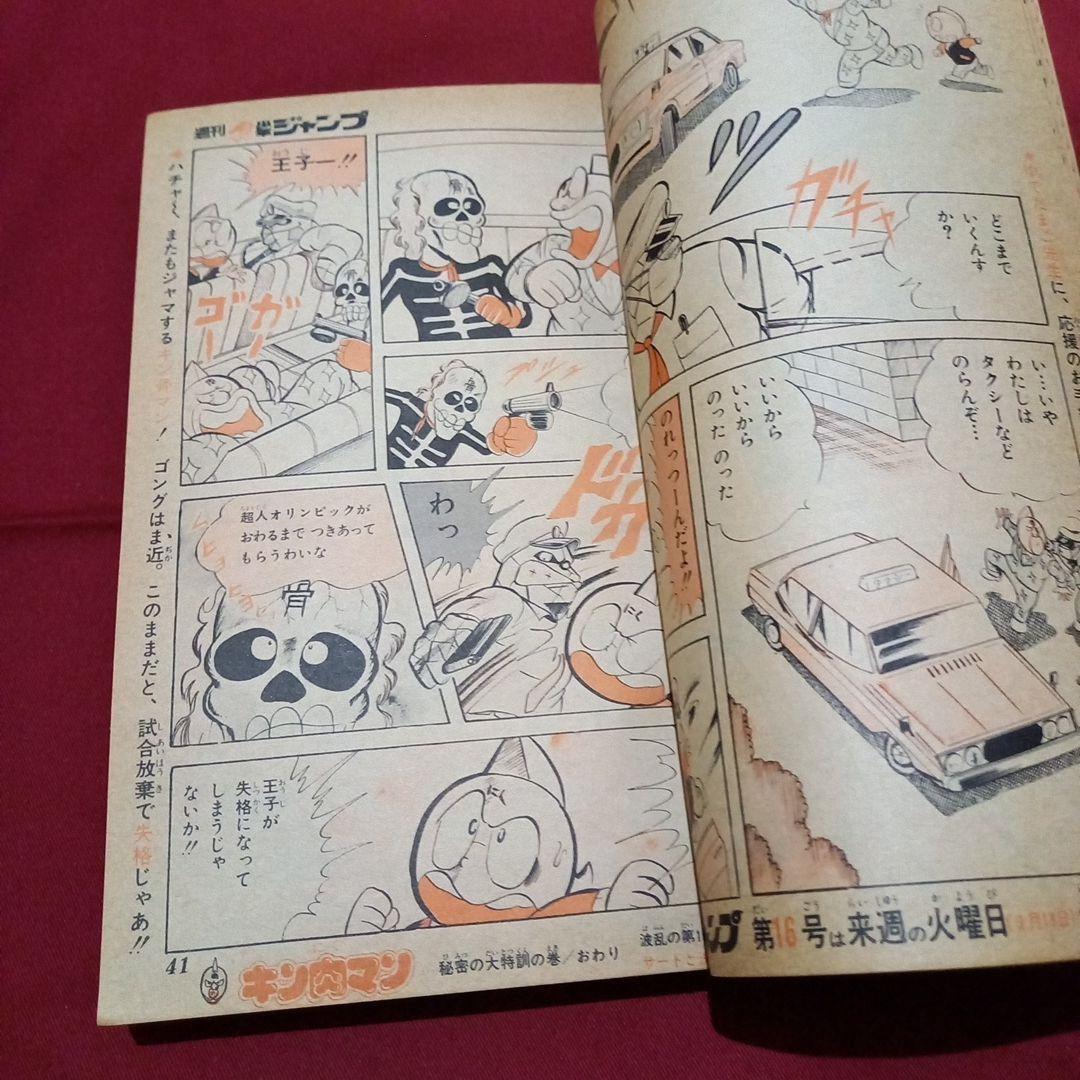 週刊 少年ジャンプ
どこまで
いくんす
か?
ガチャ
い…いや
わたしは
タクシーなど
のらんぞ…
いいから
いいから
のったのった
のれっつーんだよ!!
王子ー!!
ゴガーー
超人オリンピックが
おわるまでつきあって
もらうわいな
骨
わっ
ドカ
にく
王子が
失格になって
しまうじゃ
ないか!!
ハチャ〜、またもジャマするキン骨
! ゴングはま近。このままだと、試合放棄で失格じゃあ!!
41
キン肉マン
秘密の大特訓の巻/おわり
波乱の第1
ンプ 第16号は来週の火曜日
に、応援のお